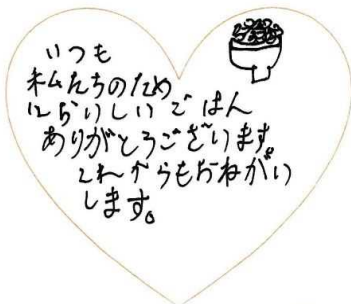 いつも
私たちのため
においしいごはん
ありがとうございます。
これからもおねがい
します。